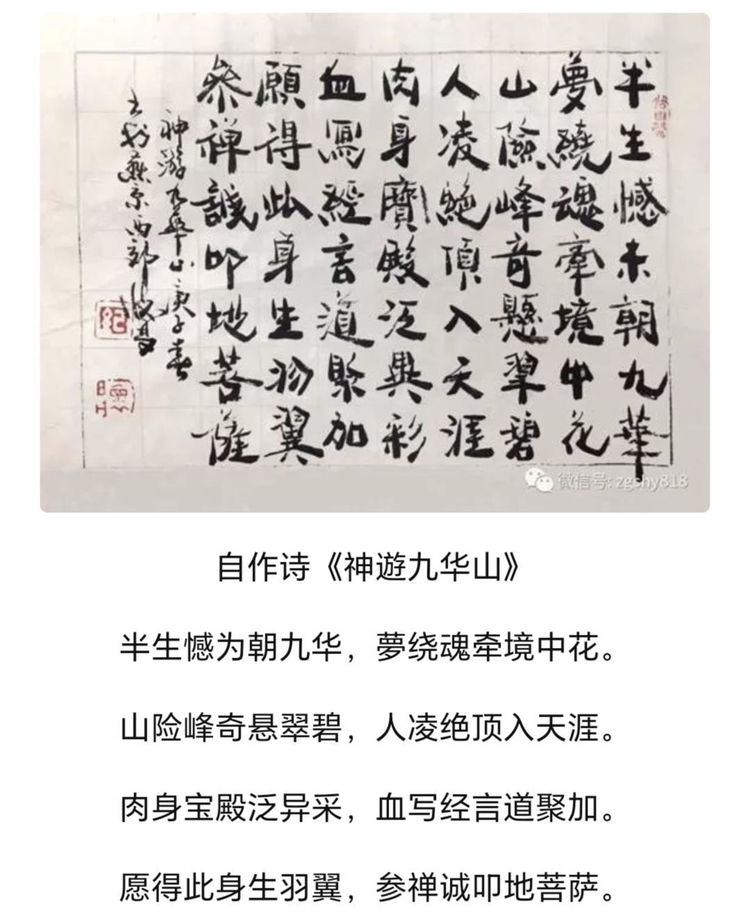 半生憾未朝九華
夢繞魂牽境中花
山險峰奇懸翠碧
人凌絶頂入天涯
肉身寶殿泛異彩
血寫經言道聚加
願得此身生羽翼
參禅誠叩地菩薩
神游九華山庚子春
于燕京西郊
微信号: zgshy818
自作诗《神遊九华山》
半生憾为朝九华，夢绕魂牵境中花。
山险峰奇悬翠碧，人凌绝顶入天涯。
肉身宝殿泛异采，血写经言道聚加。
愿得此身生羽翼，参禅诚叩地菩萨。